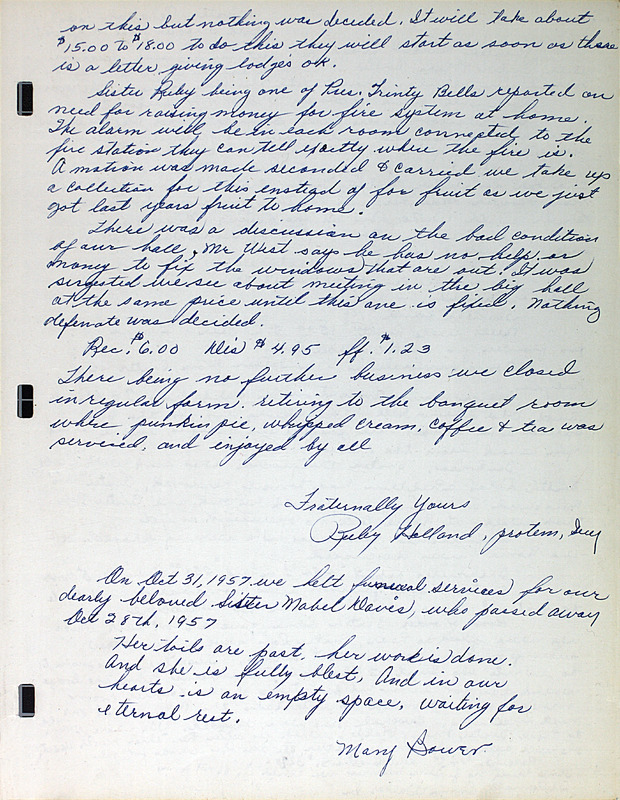 on this but nothing was decided. It will take about
$15.00 to $18.00 to do this they will start as soon as there
is a letter giving lodges ok.
Sister Ruby being one of Pres. Trinty Bells reported on
need for raising money for fire system at home.
The alarm will be in each room connected to the
fire station they can tell exactly where the fire is.
A motion was made seconded & carried we take up
a collection for this enstead of for fruit as we just
got last years fruit to home.
There was a discussion on the bad condition
of our hall, Mr West says he has no help or
money to fix the windows that are out. It was
sugested we see about meeting in the big hall
at the same price until this one is fixed. Nothing
defenate was decided.
Rec. $6.00 Dis $4.95 ff. $1.23
There being no further business we closed
in regular form. retiring to the banquet room
where punkin pie, whipped cream, coffee & tea was
serviced, and enjoyed by all
Fraternally Yours
Ruby Holland, protem, Secy
On Oct 31, 1957 we held funeral services for our
dearly beloved Sister Mabel Davis, who passed away
Oct 28th, 1957
Her toils are past, her work is done.
And she is fully blest, And in our
hearts is an empty space, waiting for
eternal rest.
Mary Bower